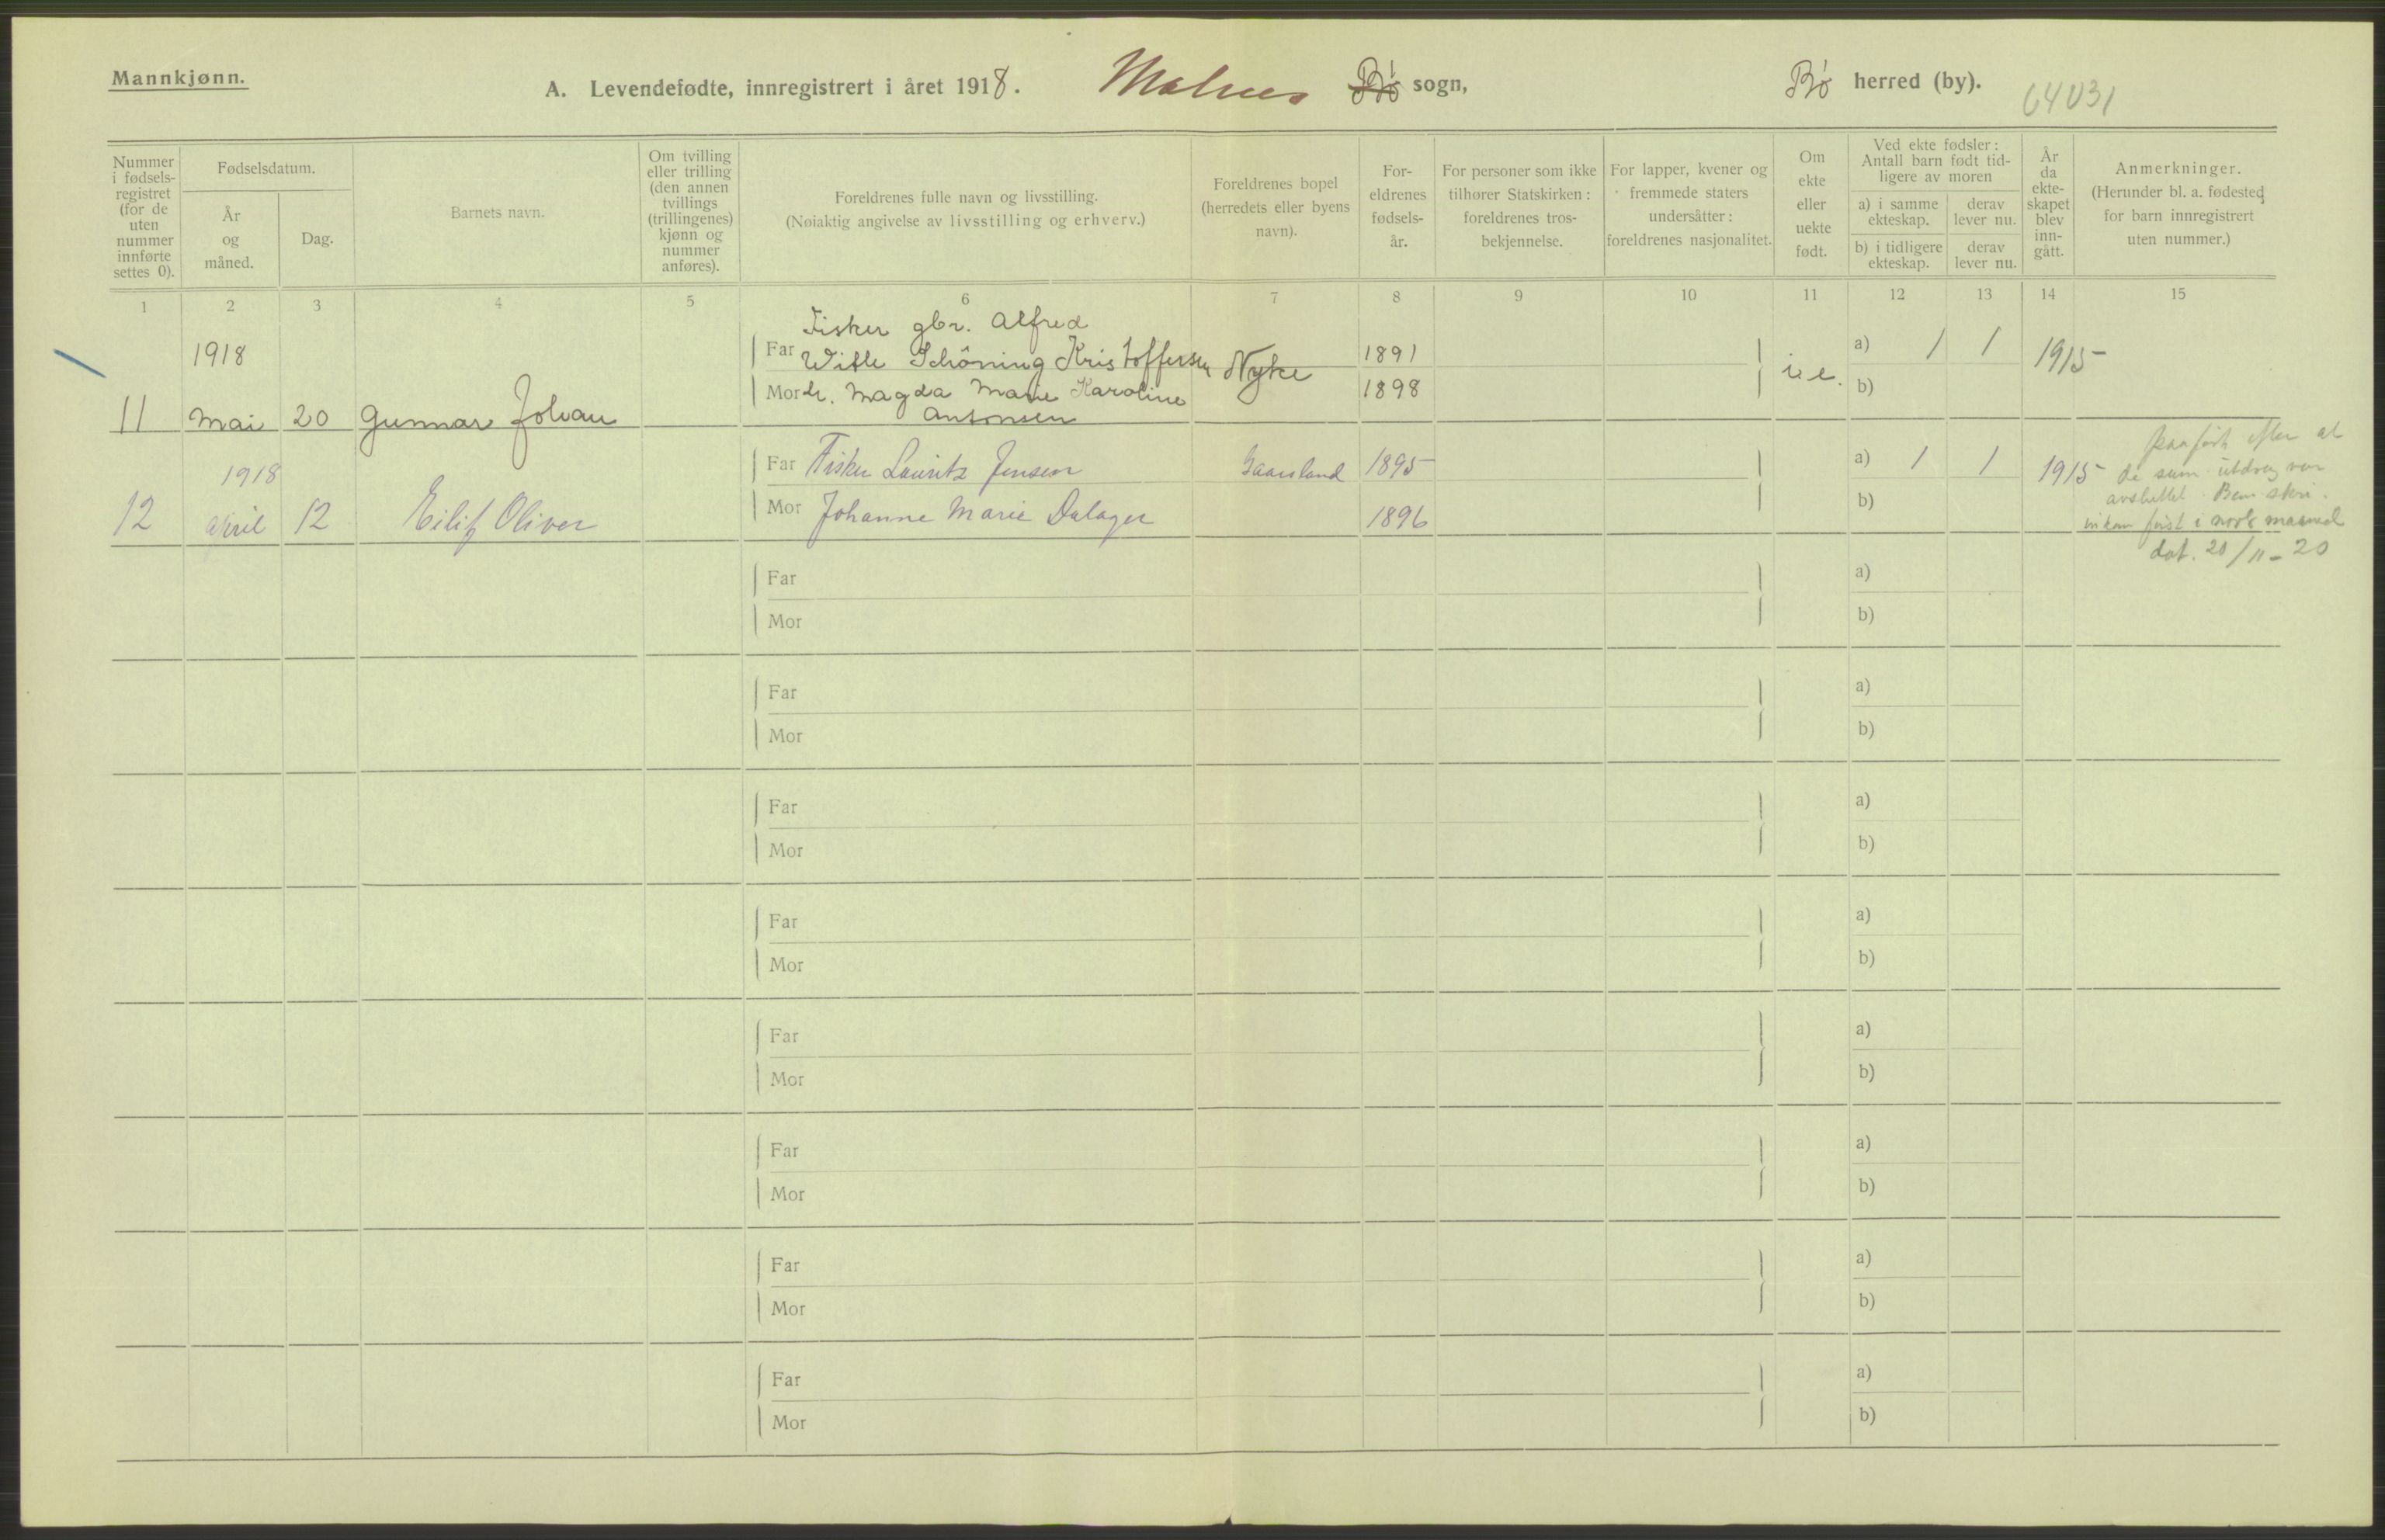 Mannkjønn.
A. Levendefødte, innregistrert i året 1918. Malnes Bø sogn, Bø herred (by).
Nummer i fødselsregistret (for de uten nummer innførte settes 0).
Fødselsdatum.
År og måned.
Dag.
Barnets navn.
Om tvilling eller trilling (den annen tvillings (trillingenes) kjønn og nummer anføres).
Foreldrenes fulle navn og livsstilling.
(Nøiaktig angivelse av livsstilling og erhverv.)
Foreldrenes bopel (herredets eller byens navn).
Foreldrenes fødselsår.
For personer som ikke tilhører Statskirken: foreldrenes trosbekjennelse.
For lapper, kvener og fremmede staters undersåtter: foreldrenes nasjonalitet.
Om ekte eller uekte født.
Ved ekte fødsler: Antall barn født tidligere av moren
a) i samme ekteskap.
derav lever nu.
b) i tidligere ekteskap.
derav lever nu.
År da ekteskapet blev inngått.
Anmerkninger.
(Herunder bl. a. fødested for barn innregistrert uten nummer.)
1 2 3 4 5 6 7 8 9 10 11 12 13 14 15
Fisker gbr. Alfred
1918 Far Wille Schöning Kristoffersen Nyke 1891 a) 1 1 1915
Mor Magda Marie Karoline 1898 b)
11 Mai 20 Gunnar Johan Antonsen
1918 Far Fisker Lauritz Jensen 1895 a) 1 1 1915
12 april 12 Eilif Oliver Mor Johanne Marie Dalager 1896 b)
paaført efter at
utdrag var
først i
dat. 20/11-20
Far a)
Mor b)
Far a)
Mor b)
Far a)
Mor b)
Far a)
Mor b)
Far a)
Mor b)
Far a)
Mor b)
Far a)
Mor b)
Far a)
Mor b)